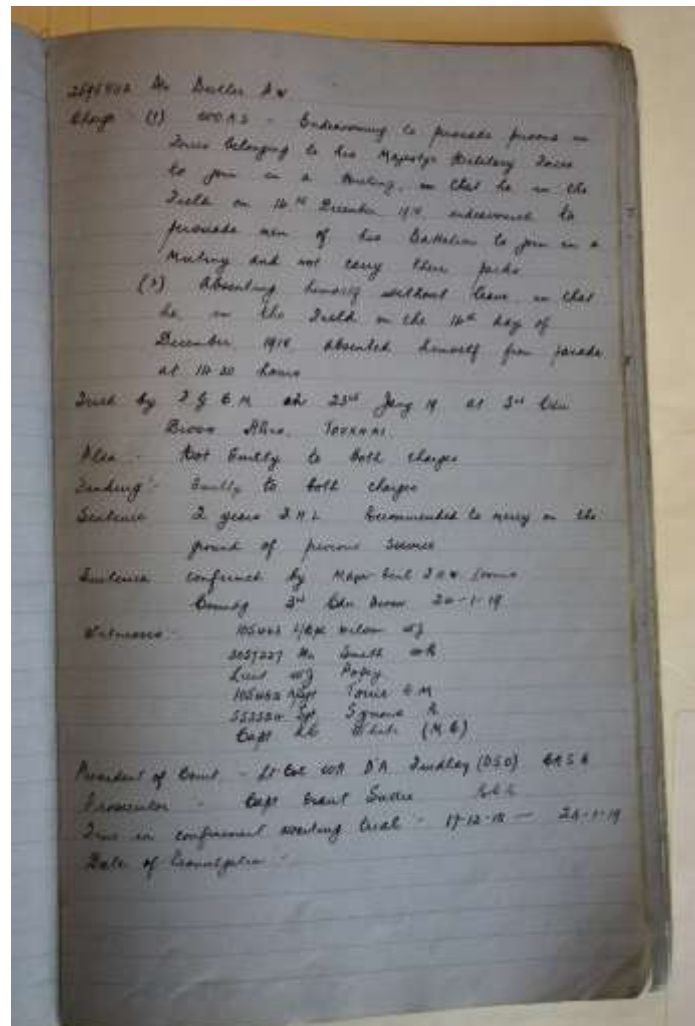 Charge (1) WOAS - Endeavouring to persuade persons in
Forces belonging to His Majestys Military Forces
to join in a Mutiny, in that he in the
Field on 14th December 1918, endeavoured to
persuade men of his Battalion to join in a
Mutiny and not carry their packs
(2) Absenting himself without leave in that
he, in the Field on the 14th day of
December 1918 absented himself from parade
at 14 30 hours
Tried by F G C M on 23rd Jany 19 at 3rd Cdn
Divnl Hdrs. TOURNAI.
Plea :- Not Guilty to both charges
Finding :- Guilty to both charges
Sentence 2 years I.H.L. Recommended to mercy on the
ground of previous Service
Sentence confirmed by Major Genl Loomis
Commdg 3rd Cdn Divn 24-1-19
Witnesses :- Wilson WJ
Smith
Lieut WJ
Sgt
Sgt Symons
Capt White (M C)
President of Court - Lt Col D'A Findlay (DSO)
Prosecutor - Capt
Time in confinement awaiting trial - 17-12-18 — 24-1-19
Date of Promulgation -